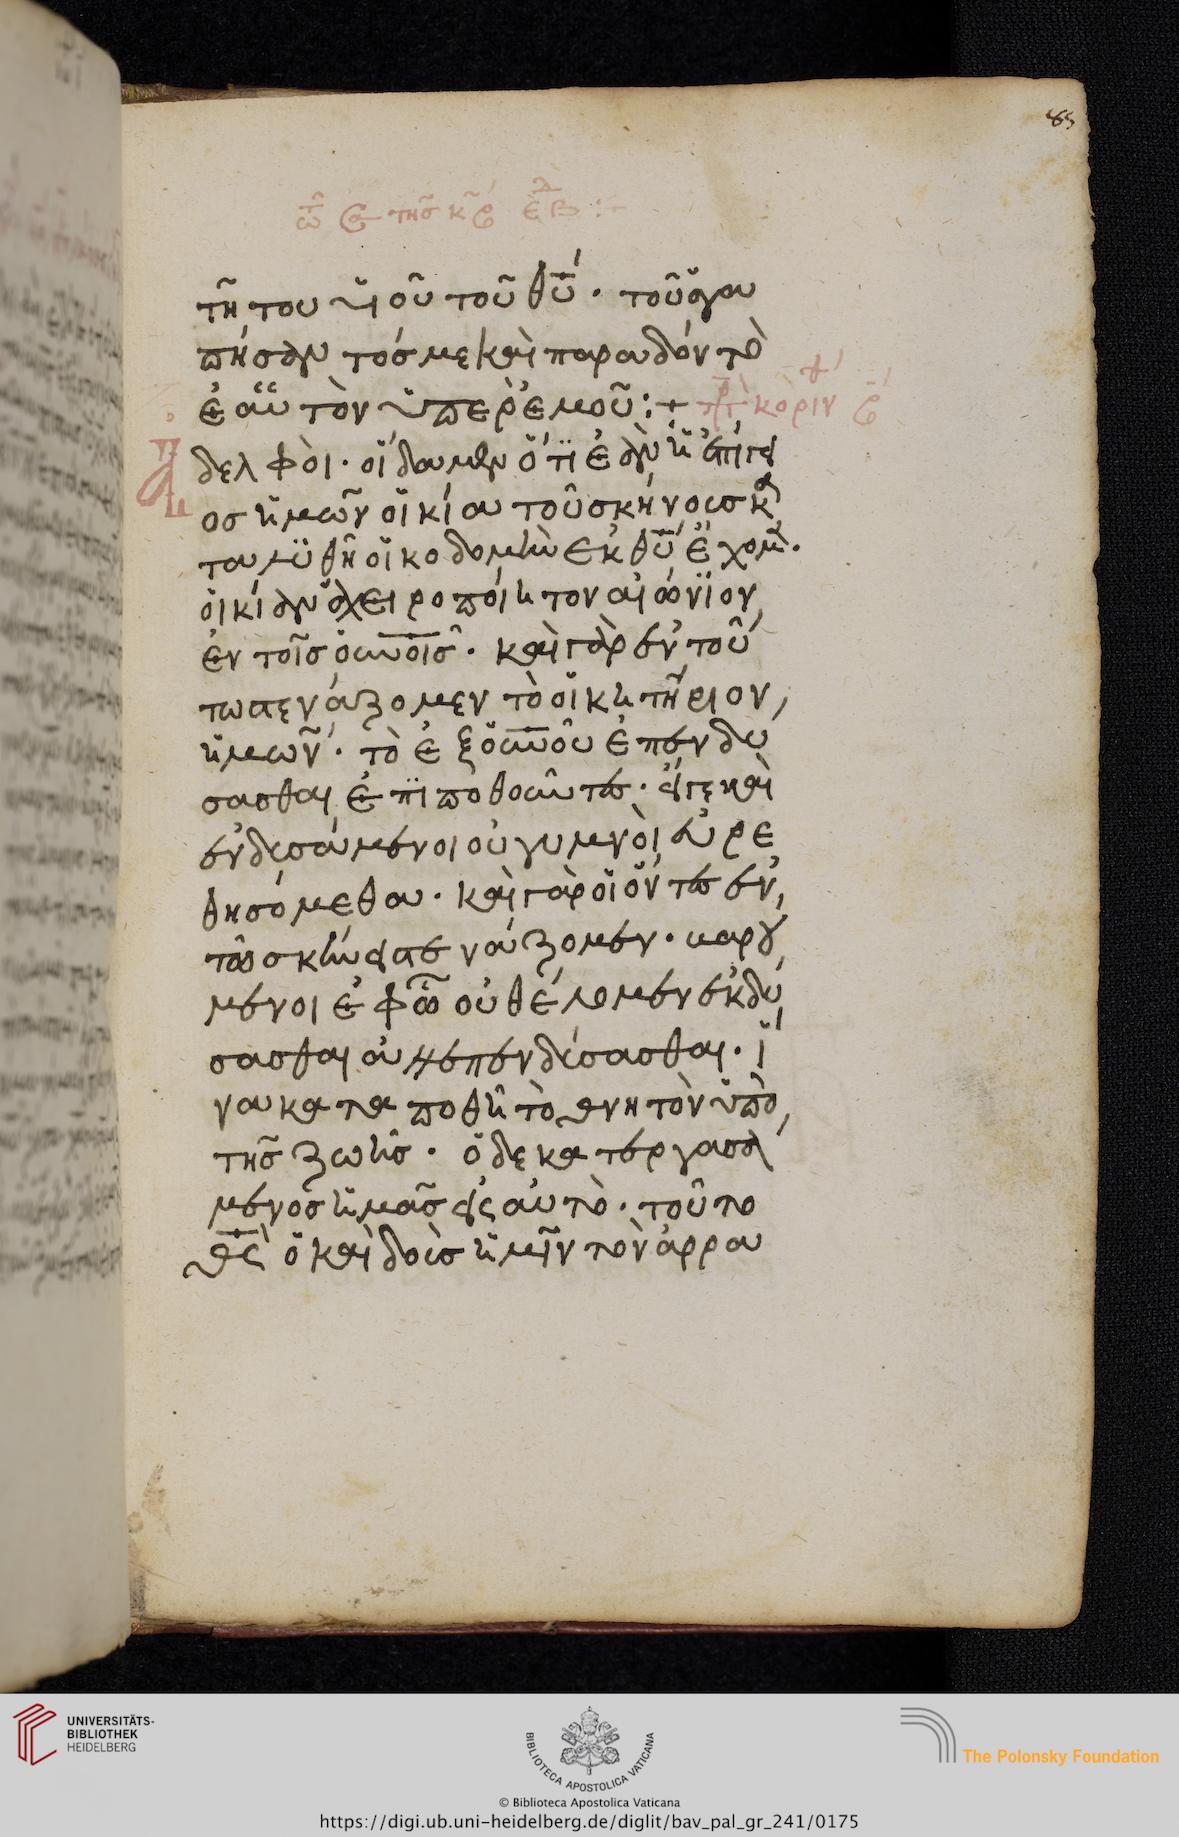 85
τῆ του υἱοῦ τοῦ θῦ· τοῦ ἀγα
πήσαντός με καὶ παραδόντο
ἑαυτὸν ὑπὲρ ἐμοῦ:+ πρ κοριν
Ἀδελφοὶ· οἴδαμεν ὅτι ἐὰν ἡ ἐπίγει
ος ἡμῶν οἰκία τοῦ σκήνους κα
ταλυθῆ οἰκοδομὴν ἐκ θῦ ἔχομεν·
οἰκίαν ἀχειροποίητον αἰώνϊον
ἐν τοῖς οὐνοῖς· καὶ γὰρ ἐν τού
τω στενάζομεν τὸ οἰκητήριον
ἡμῶν· τὸ ἐξ οὐνοῦ ἐπενδυ
σασθαι ἐπιποθοῦντες· εἴγε καὶ
ἐνδυσάμενοι οὐ γυμνοὶ εὑρε
θησόμεθα· καὶ γὰρ οἱ ὄντες ἐν
τῶ σκήνει στενάζομεν· βαρού
μενοι ἐφ ὧ οὐ θέλομεν ἐκδύ
σασθαι ἀλλ επενδύσασθαι· ἵ
να καταποθῆ τὸ θνητὸν ὑπὸ
τῆς ζωῆς· ὁ δε κατεργασά
μενος ἡμᾶς εἰς αὐτὸ· τοῦτο
θς ὁ καὶ δοὺς ἡμῖν τὸν ἀρρα
UNIVERSITÄTS-
BIBLIOTHEK
HEIDELBERG
BIBLIOTECA APOSTOLICA VATICANA
The Polonsky Foundation
© Biblioteca Apostolica Vaticana
https://digi.ub.uni-heidelberg.de/diglit/bav_pal_gr_241/0175